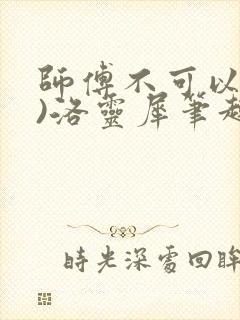 師傅不可以
)洛靈犀筆趣
時光深處回眸